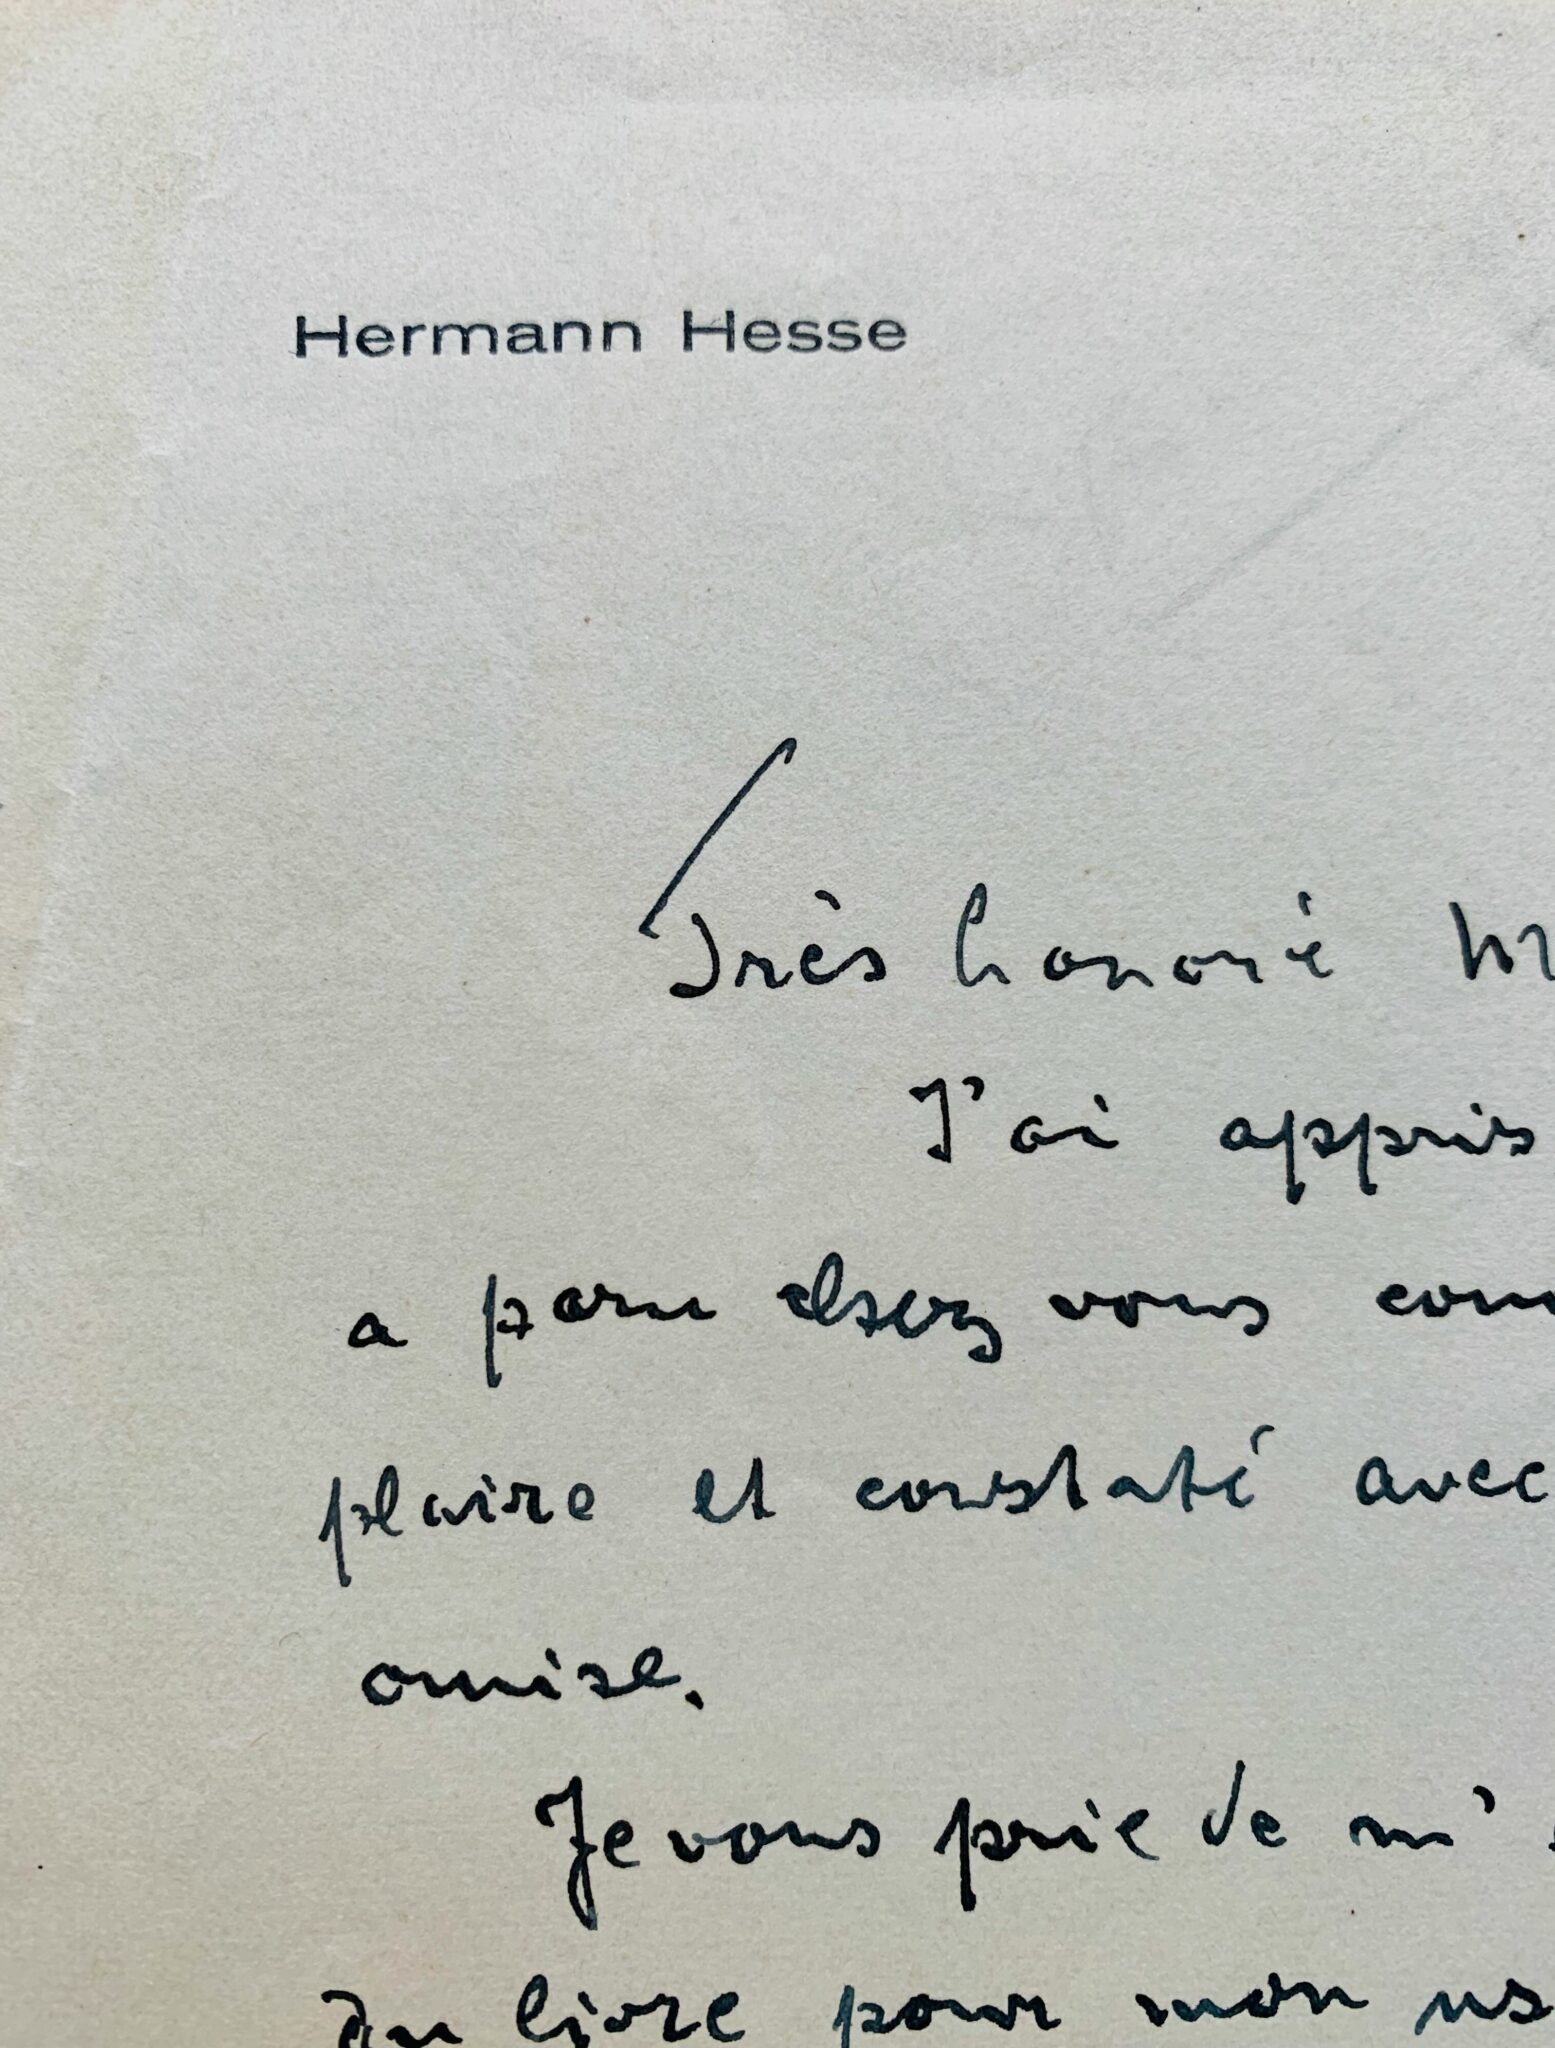 Hermann Hesse
Très honoré M
J'ai appris
a paru chez vous
plaire et constaté avec
omise.
Je vous prie de m'
du livre pour mon us